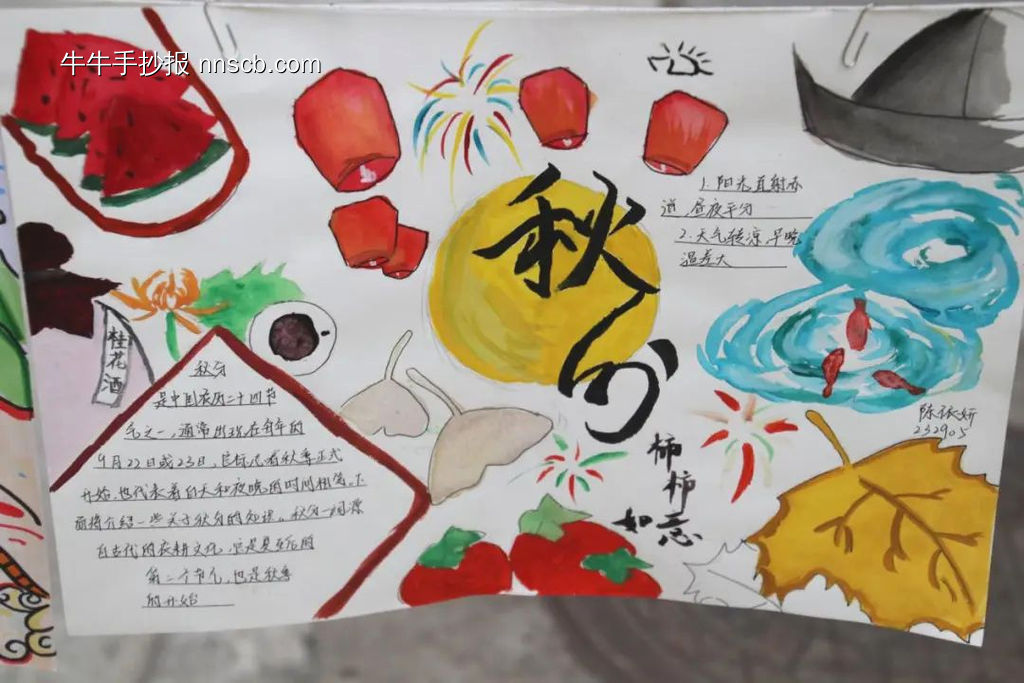 牛牛手抄报 nnscb.com
秋分
1. 阳光直射赤
道,昼夜平分
2. 天气转凉,早晚
温差大
桂花酒
秋分
是中国农历二十四节
气之一,通常出现在每年的
9月22日或23日,它标志着秋季正式
开始,也代表着白天和夜晚的时间相等。下
面将介绍一些关于秋分的知识。秋分一词源
自古代的农耕文化,它是
第二个节气,也是秋季
的开始
柿柿
如意
232905